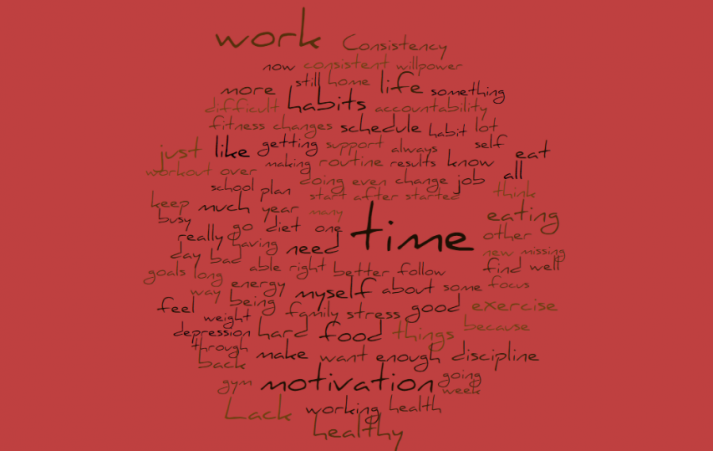 work Consistency
now consistent willpower
more still home life something
difficult habits accountability
fitness changes schedule habit lot
just like getting support always self eat
workout over making routine results know all
school plan doing even change job think
keep much year many start after started
busy really go diet one time eating
day bad having need other
new missing
goals long able right better follow find well
way energy myself about some focus
feel being family stress good exercise
weight
depression hard food things because
through make want enough discipline
back
gym motivation going
week
Lack working health
healthy